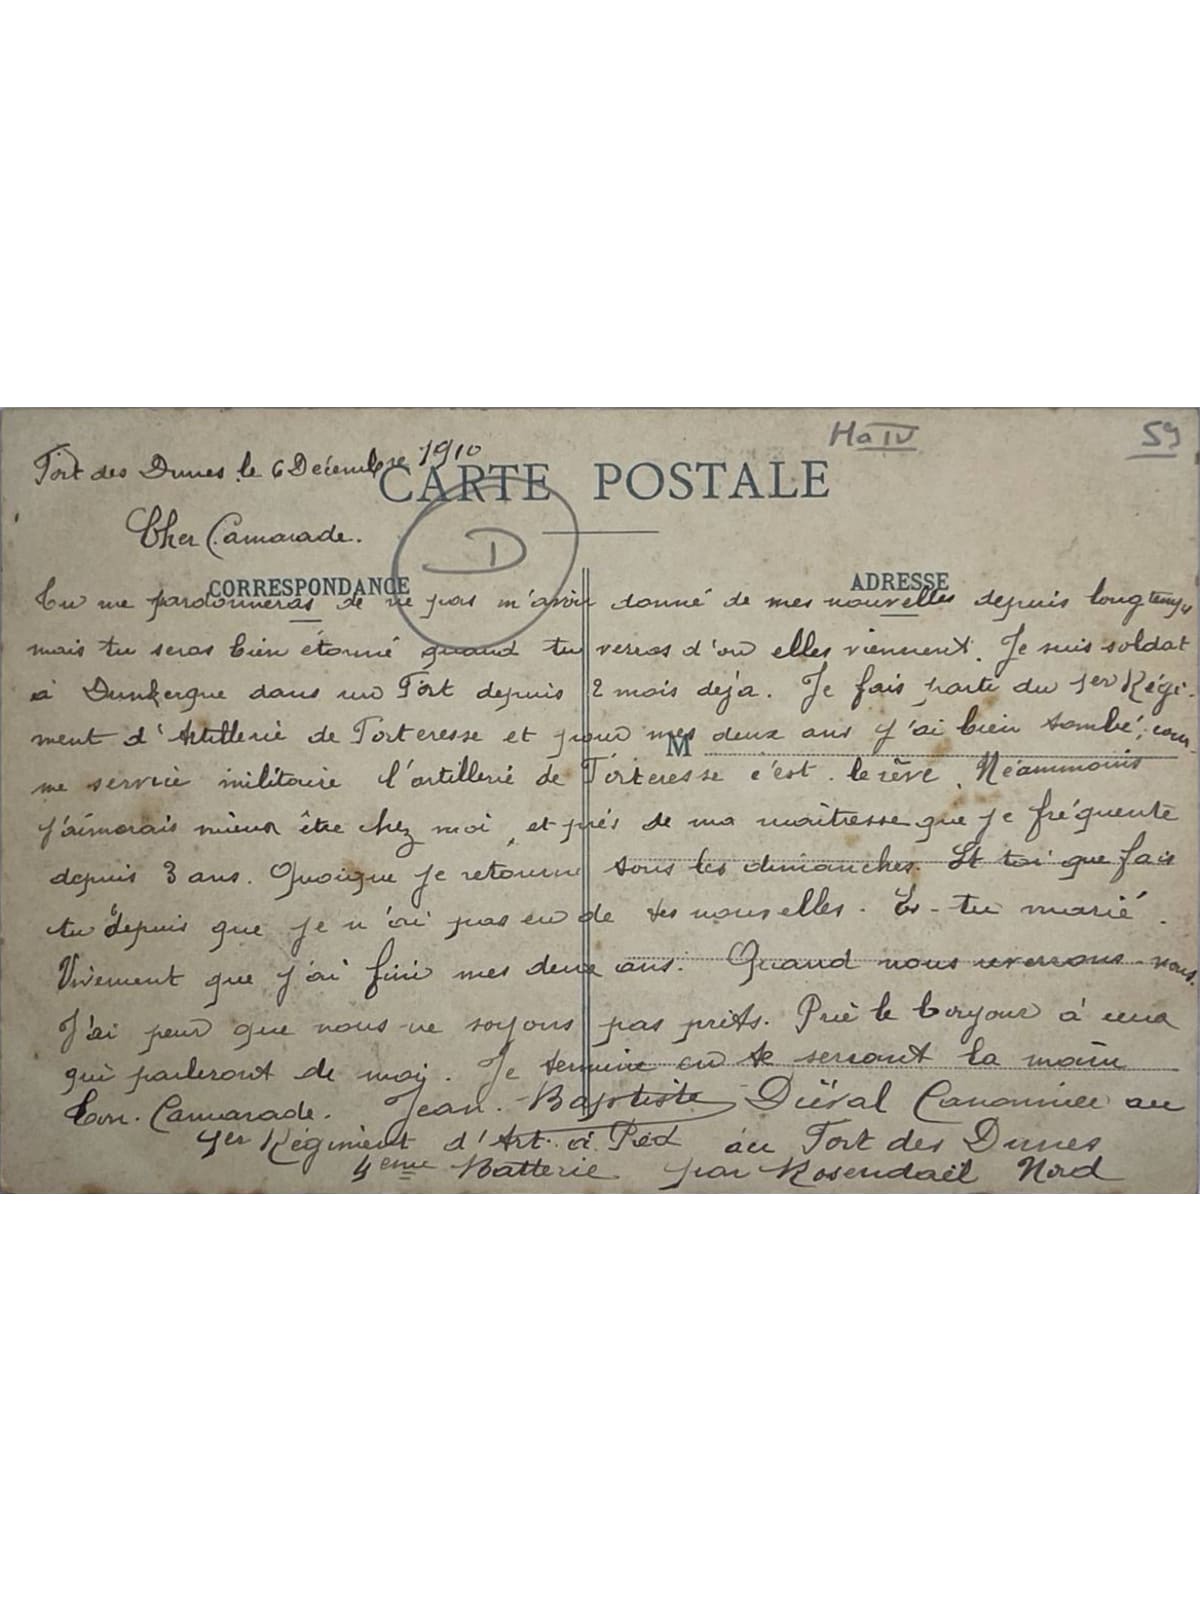 Ma IV
59
Fort des Dunes le 6 Décembre 1910
CARTE POSTALE
D
Cher Camarade.
CORRESPONDANCE
ADRESSE
Tu me pardonneras de ne pas m'avoir donné de mes nouvelles depuis longtemps
mais tu seras bien étonné quand tu verras d'ou elles viennent. Je suis soldat
à Dunkerque dans un Fort depuis 2 mois deja. Je fais parti du 1er Régi-
ment d'Artillerie de Forteresse et pour mes deux ans j'ai bien tombé, com-
M
me service militaire l'artillerie de Forteresse c'est le rêve. Néammoins
j'aimerais mieux être chez moi et près de ma maîtresse que je fréquente
depuis 3 ans. Quoique je retourne tous les dimanches. Et toi que fais
tu depuis que je n'ai pas eu de tes nouvelles. Es-tu marié.
Vivement que j'ai fini mes deux ans. Quand nous reverrons-nous.
J'ai peur que nous ne soyons pas prêts. Prie le bonjour à ceux
qui parleront de moi. Je termine en te serrant la main
Ton. Camarade. Jean-Baptiste Duëval Canonnier au
1er Régiment d'Art. à Pied au Fort des Dunes
4eme Batterie par Rosendaël Nord